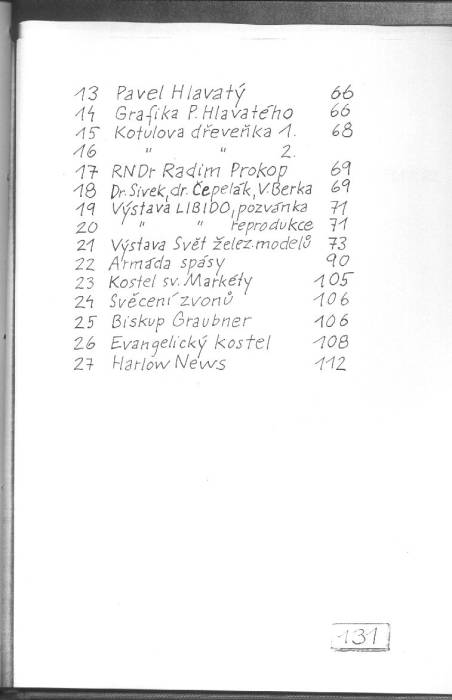 13 Pavel Hlavatý 66
14 Grafika P. Hlavatého 66
15 Kotulova dřeveňka 1. 68
16 " " 2.
17 RNDr Radim Prokop 69
18 Dr. Sivek, dr. Čepelák, V. Berka 69
19 Výstava LIBIDO, pozvánka 71
20 " " reprodukce 71
21 Výstava Svět želez. modelů 73
22 Armáda spásy 90
23 Kostel sv. Markéty 105
24 Svěcení zvonů 106
25 Biskup Graubner 106
26 Evangelický kostel 108
27 Harlow News 112
131